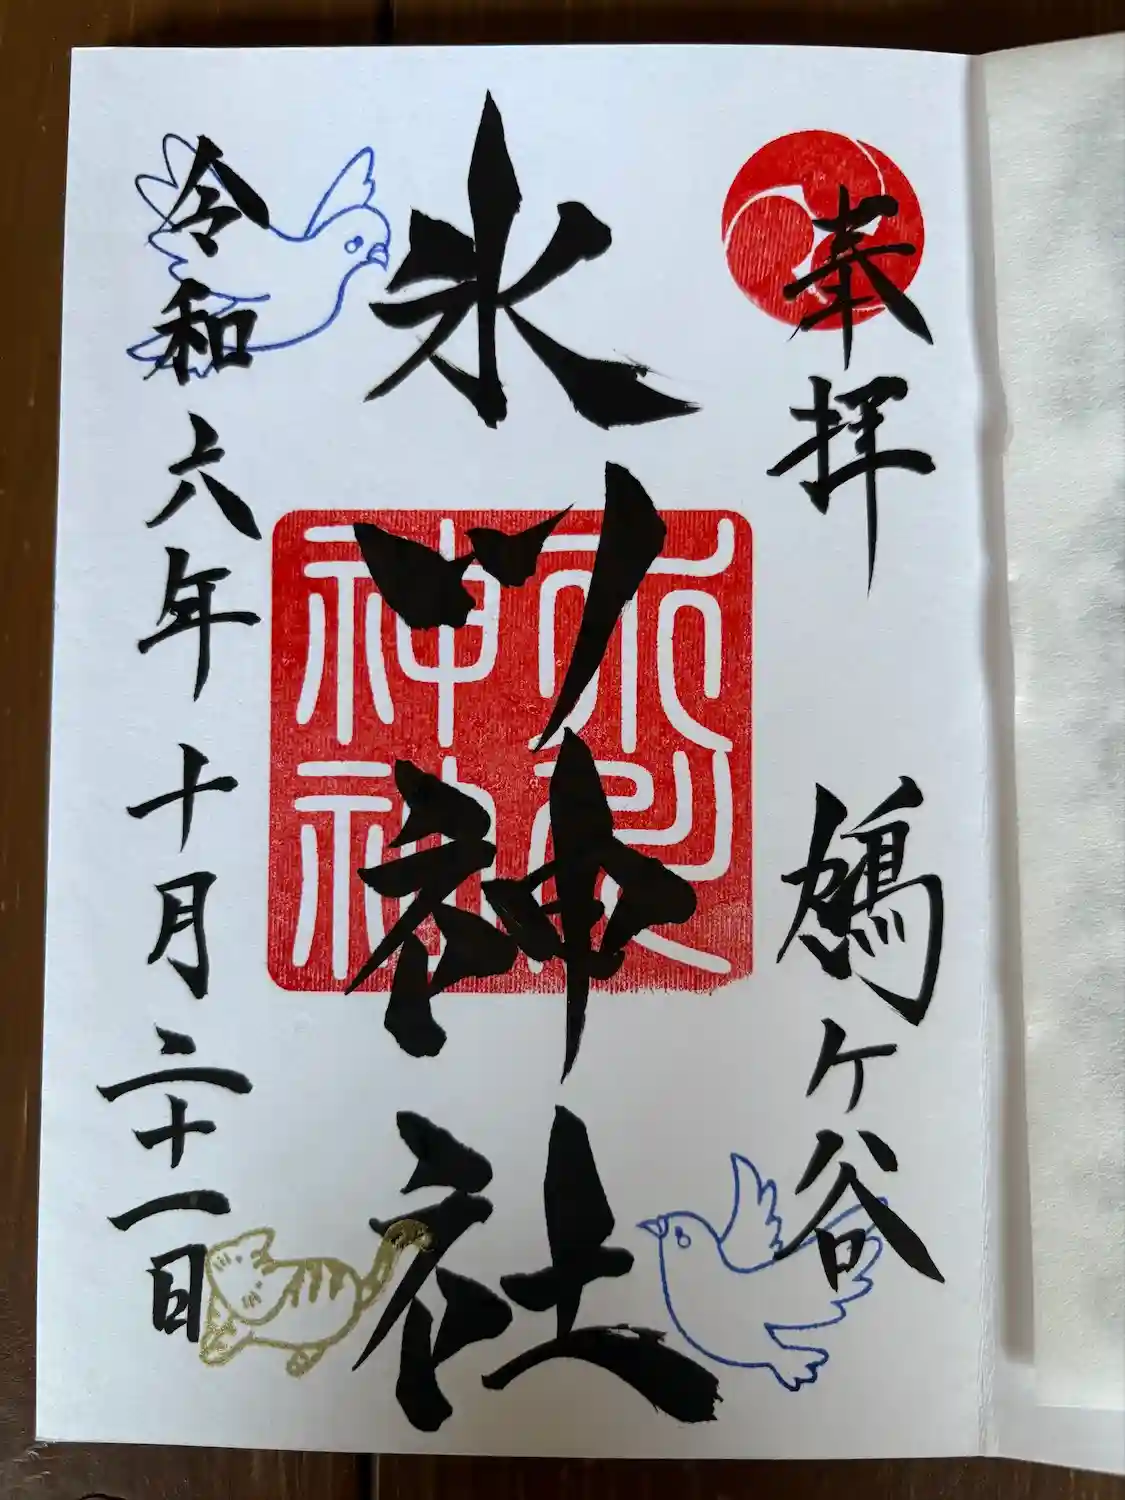 奉拝
鳩ヶ谷
氷川神社
令和六年十月二十一日
神社